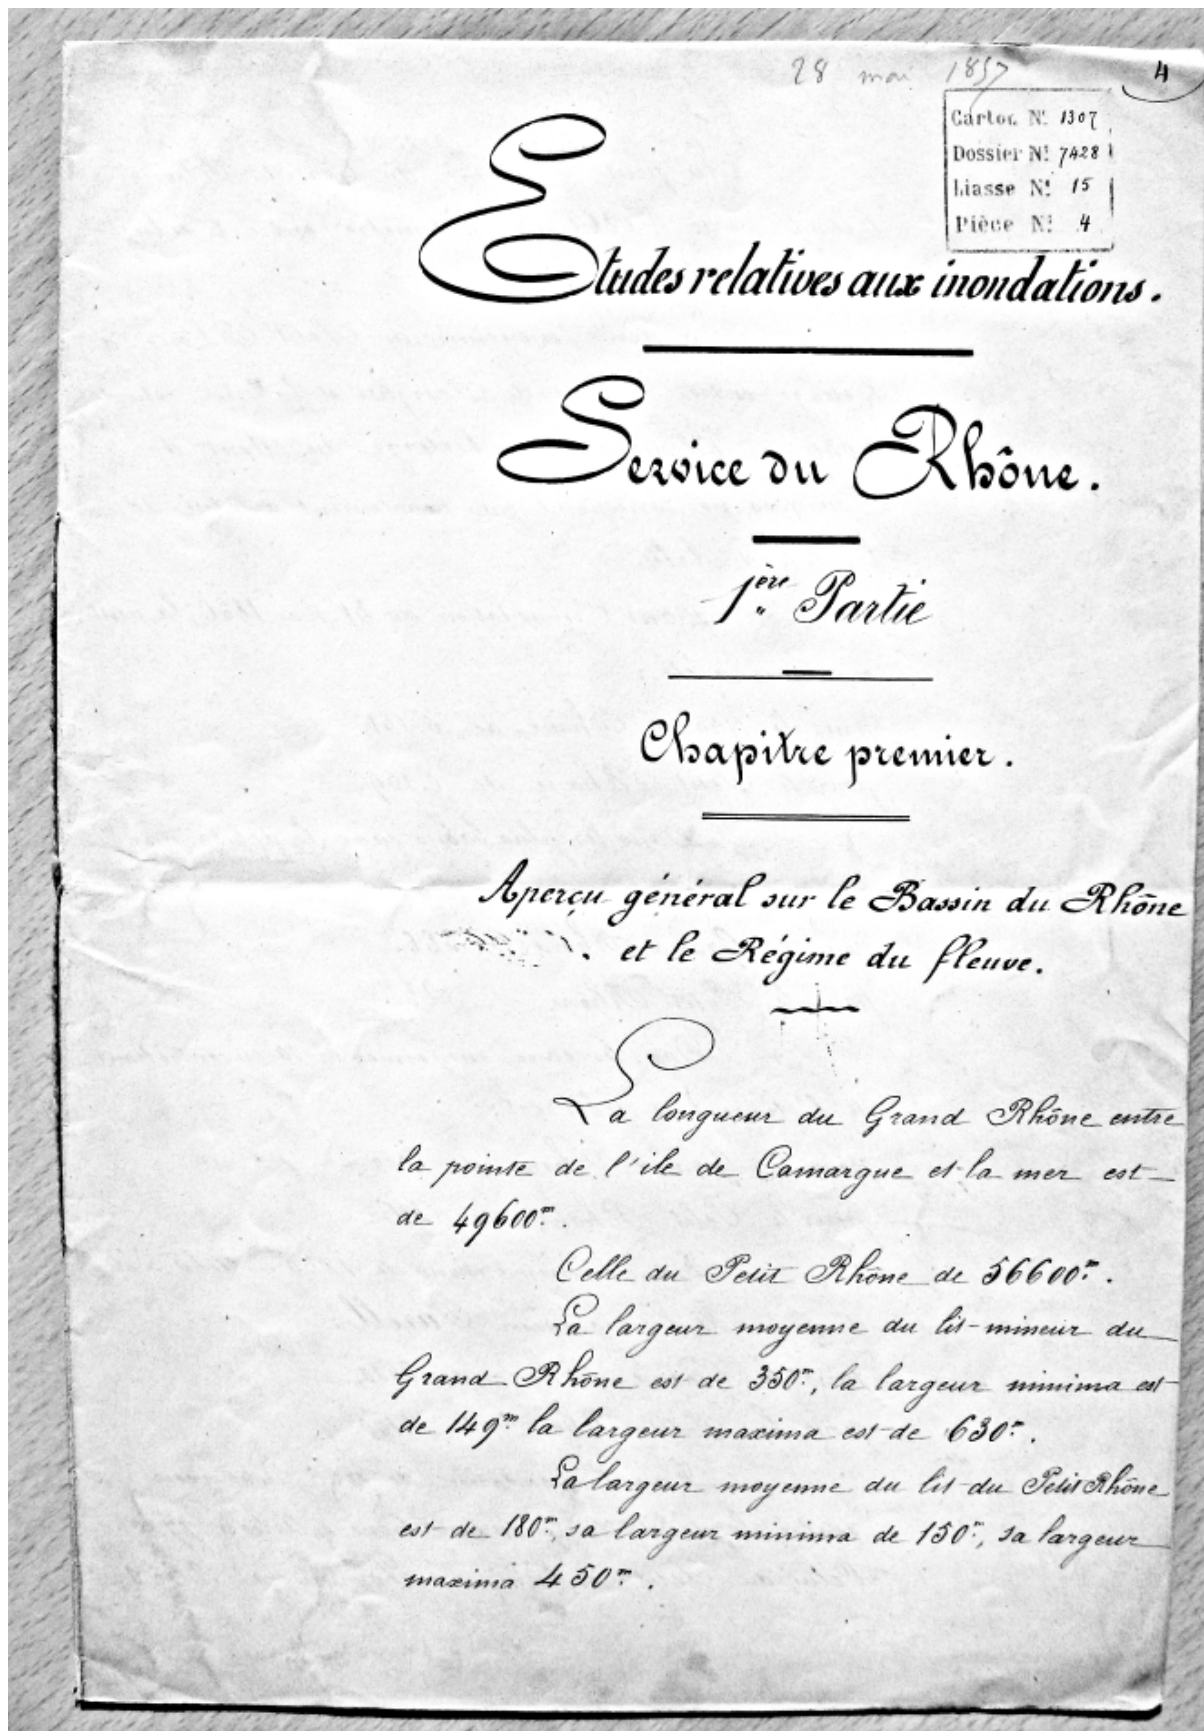 28 mai 1857
4
Carton N° 1307
Dossier N° 7428
Liasse N° 15
Pièce N° 4
Etudes relatives aux inondations.
Service du Rhône.
1ère Partie
Chapitre premier.
Aperçu général sur le Bassin du Rhône
et le Régime du fleuve.
La longueur du Grand Rhône entre
la pointe de l'ile de Camargue et la mer est
de 49600m.
Celle du Petit Rhône de 56600m.
La largeur moyenne du lit-mineur du
Grand Rhône est de 350m, la largeur minima est
de 149m la largeur maxima est de 630m.
La largeur moyenne du lit du Petit Rhône
est de 180m, sa largeur minima de 150m, sa largeur
maxima 450m.